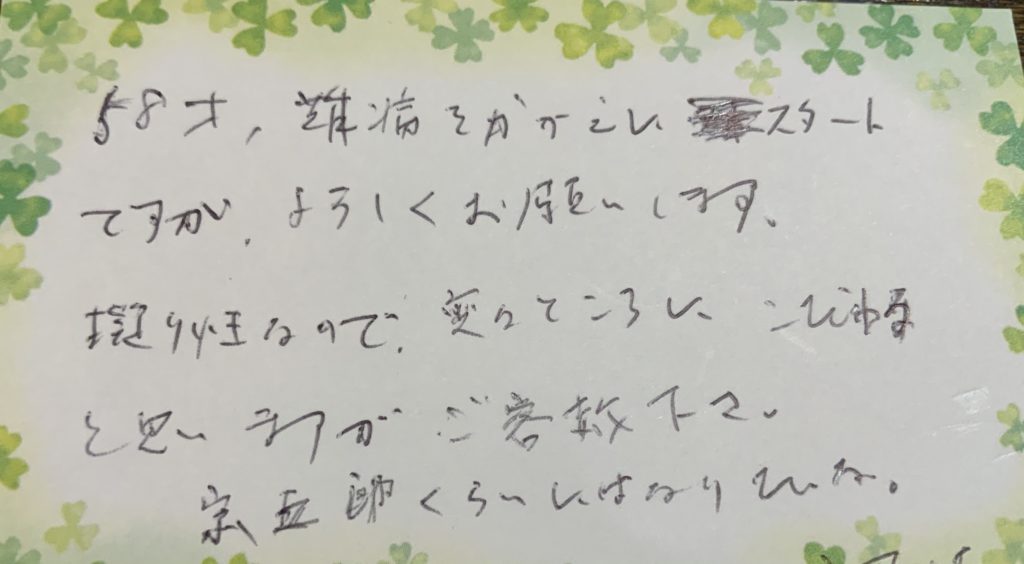 58才、難病をかかえし スタート
ですが、よろしくお願いします。
凝り性なので、変なところに、こだわる
と思いますが ご容赦下さい。
くらいにはなりたいな。